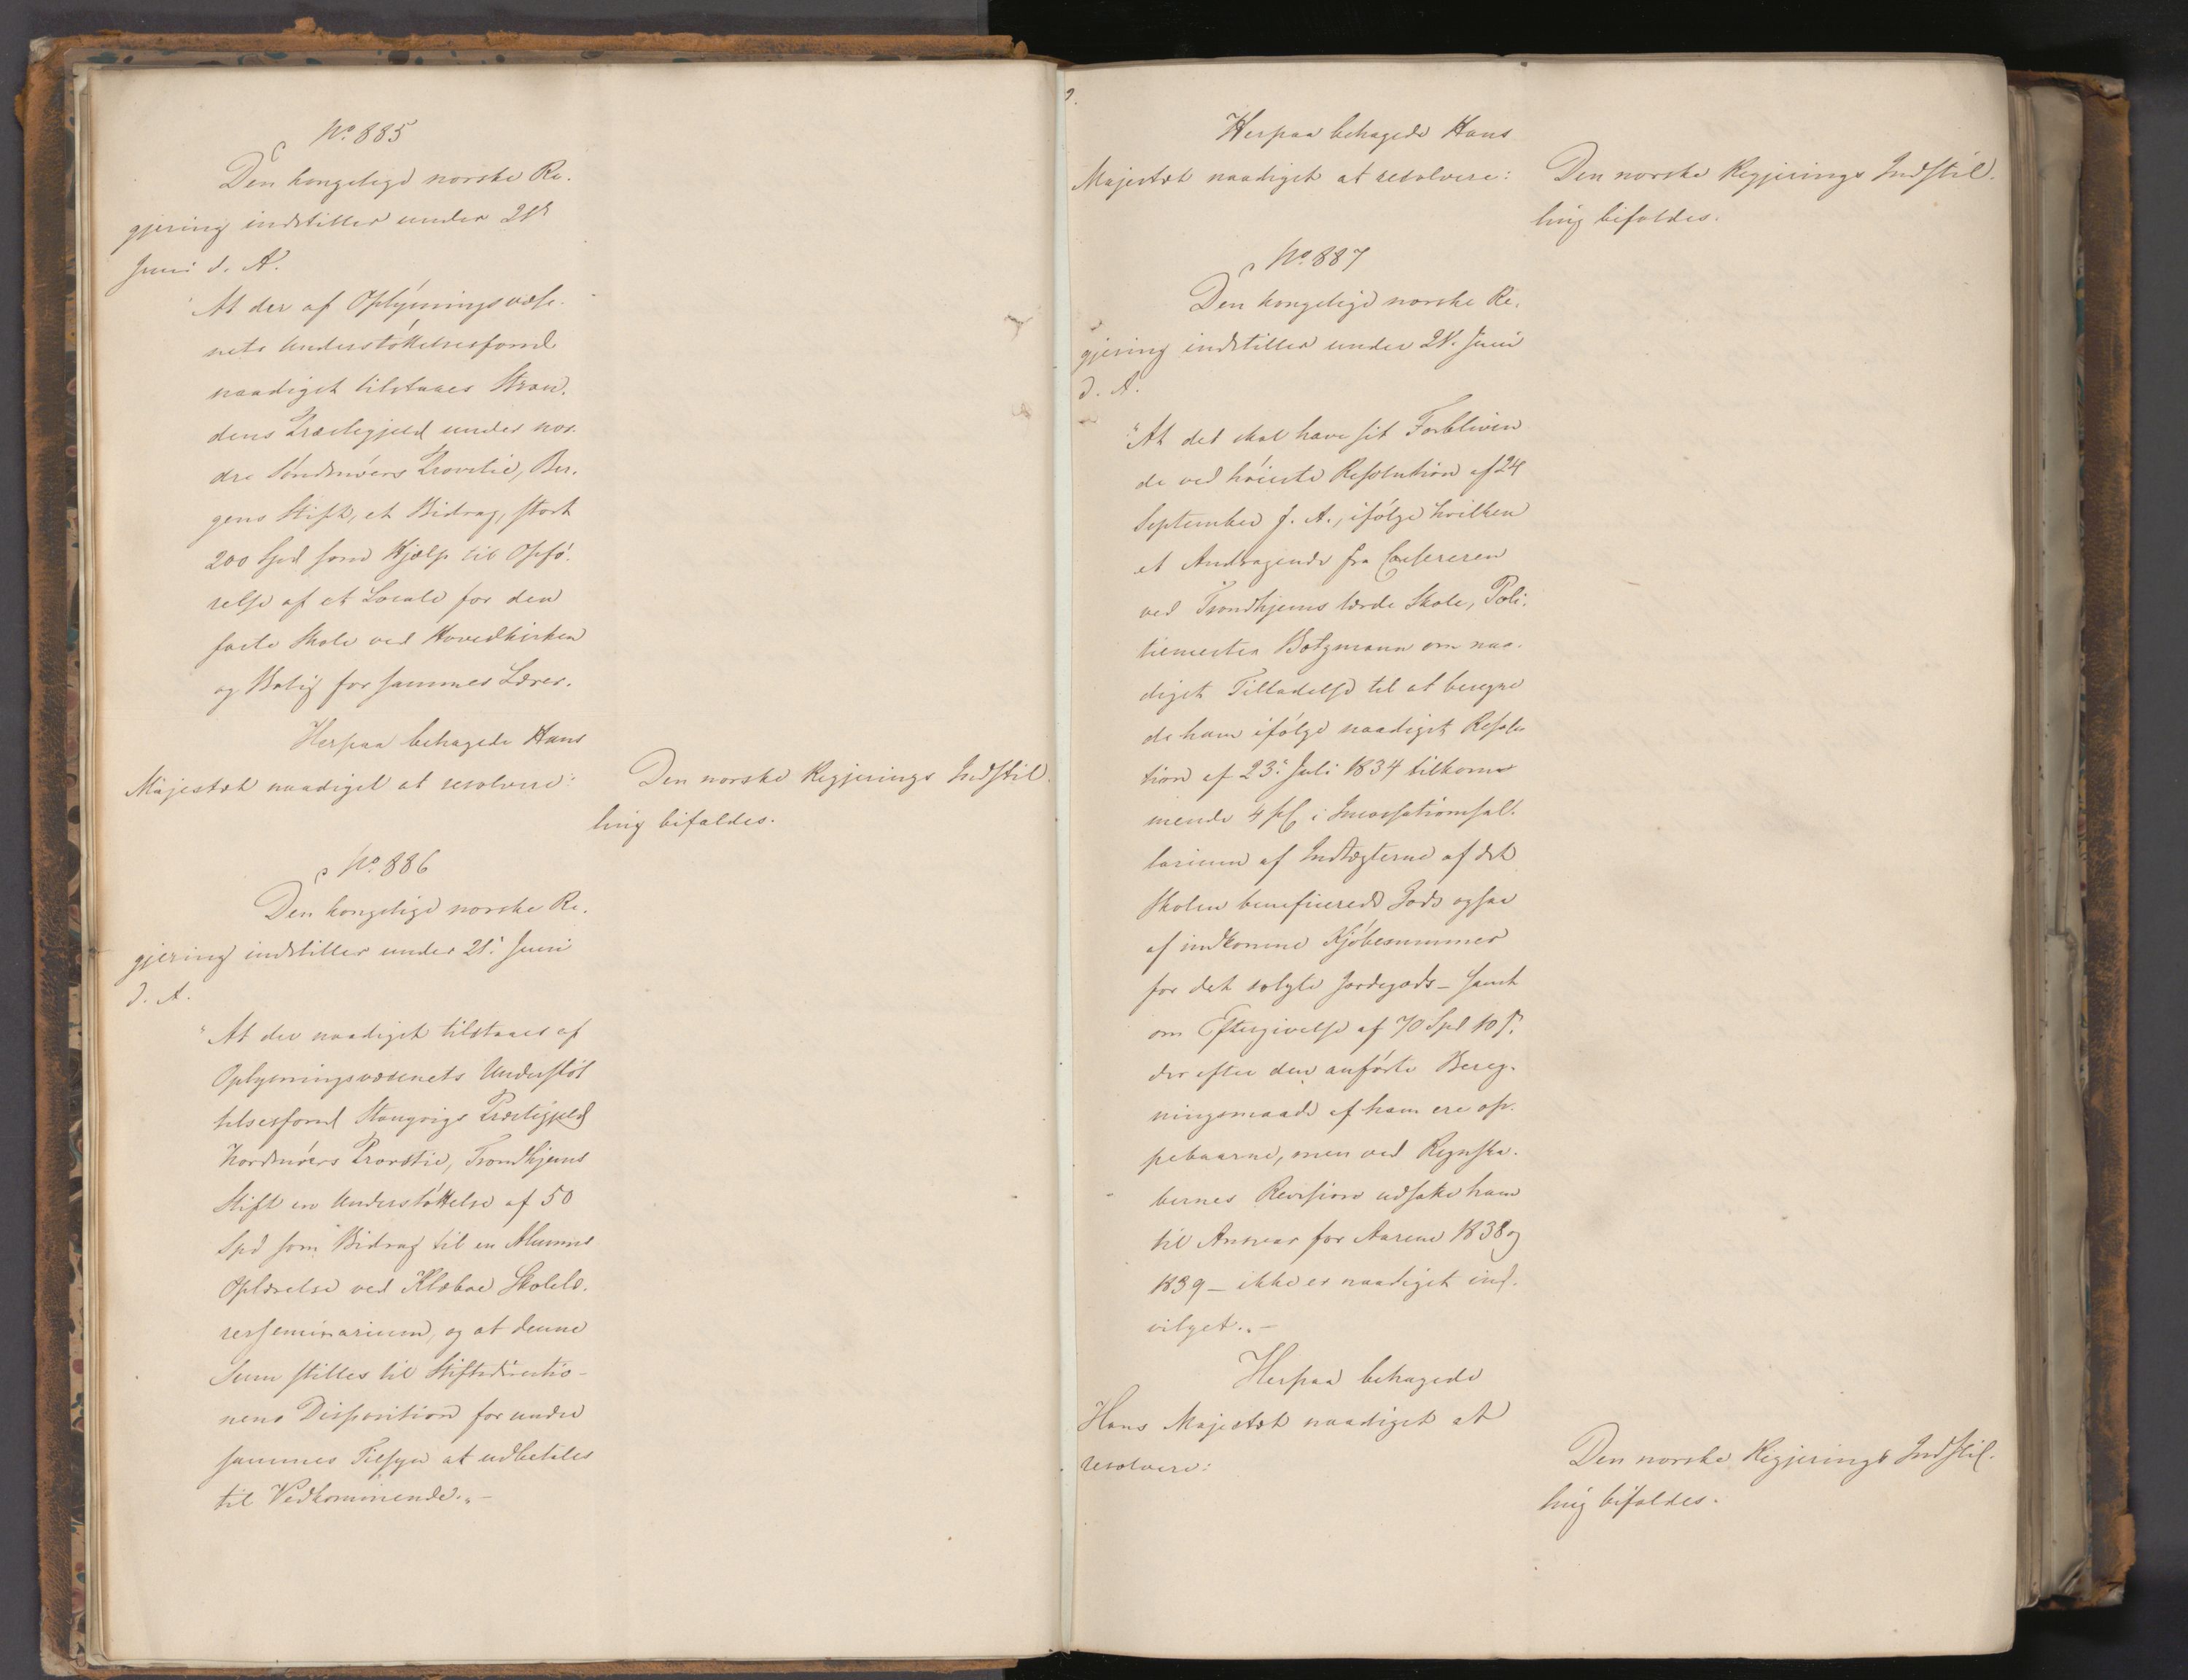 No 885
Den kongelige norske Re-
gjering indstiller under 21de
Juni d. A.
"At der af Oplysningsvæse-
nets Understøttelsesfond
naadigst tilstaaes Stran-
dens Præstegjeld under nor-
dre Søndmøers Provstie, Ber-
gens Stift, et Bidrag, stort
200 Spd som Hjælp til Opfø-
relse af et Locale for den
faste Skole ved Hovedkirken
og Bolig for sammes Lærer.
Herpaa behagede Hans
Majestæt naadigst at resolvere:
Den norske Regjerings Indstil-
ling bifaldes.
No 886
Den kongelige norske Re-
gjering indstiller under 21. Juni
d. A.
"At der naadigst tilstaaes af
Oplysningsvæsenets Understøt
telsesfond Stangvigs Præstegjeld
Nordmøers Provstie, Trondhjems
Stift en Understøttelse af 50
Spd som Bidrag til en Alumns
Oplærelse ved Klæboe Skolelæ-
rerseminarium, og at denne
Sum stilles til Stiftsdirectio-
nens Disposition for under
sammes Tilsyn at udbetales
til Vedkommende."-
Herpaa behagede Hans
Majestæt naadigst at resolvere:
Den norske Regjerings Indstil-
ling bifaldes.
No 887
Den kongelige norske Re-
gjering indstiller under 21. Juni
d. A.
"At det skal have sit Forbliven
de ved høieste Resolution af 24
September f. A., ifølge hvilken
et Andragende fra Casereren
ved Trondhjems lærde Skole, Poli-
tiemester Botzmann om naa-
digst Tilladelse til at beregne
de ham ifølge naadigst Resolu
tion af 23. Juli 1834 tilkom-
mende 4 pC. i Incassationssal-
larium af Indtægterne af det
Skolen beneficerede Gods ogsaa
af indkomne Kjøbesummer
for det solgte Jordegods - samt
om Eftergivelse af 70 Spd 10 s.
der efter den anførte Bereg-
ningsmaade af ham ere op-
pebaarne, men ved Regnska-
bernes Revision udsatte ham
til Ansvar for Aarene 1838 og
1839 - ikke er naadigst ind-
vilget."-
Herpaa behagede
Hans Majestæt naadigst at
resolvere:
Den norske Regjerings Indstil-
ling bifaldes.